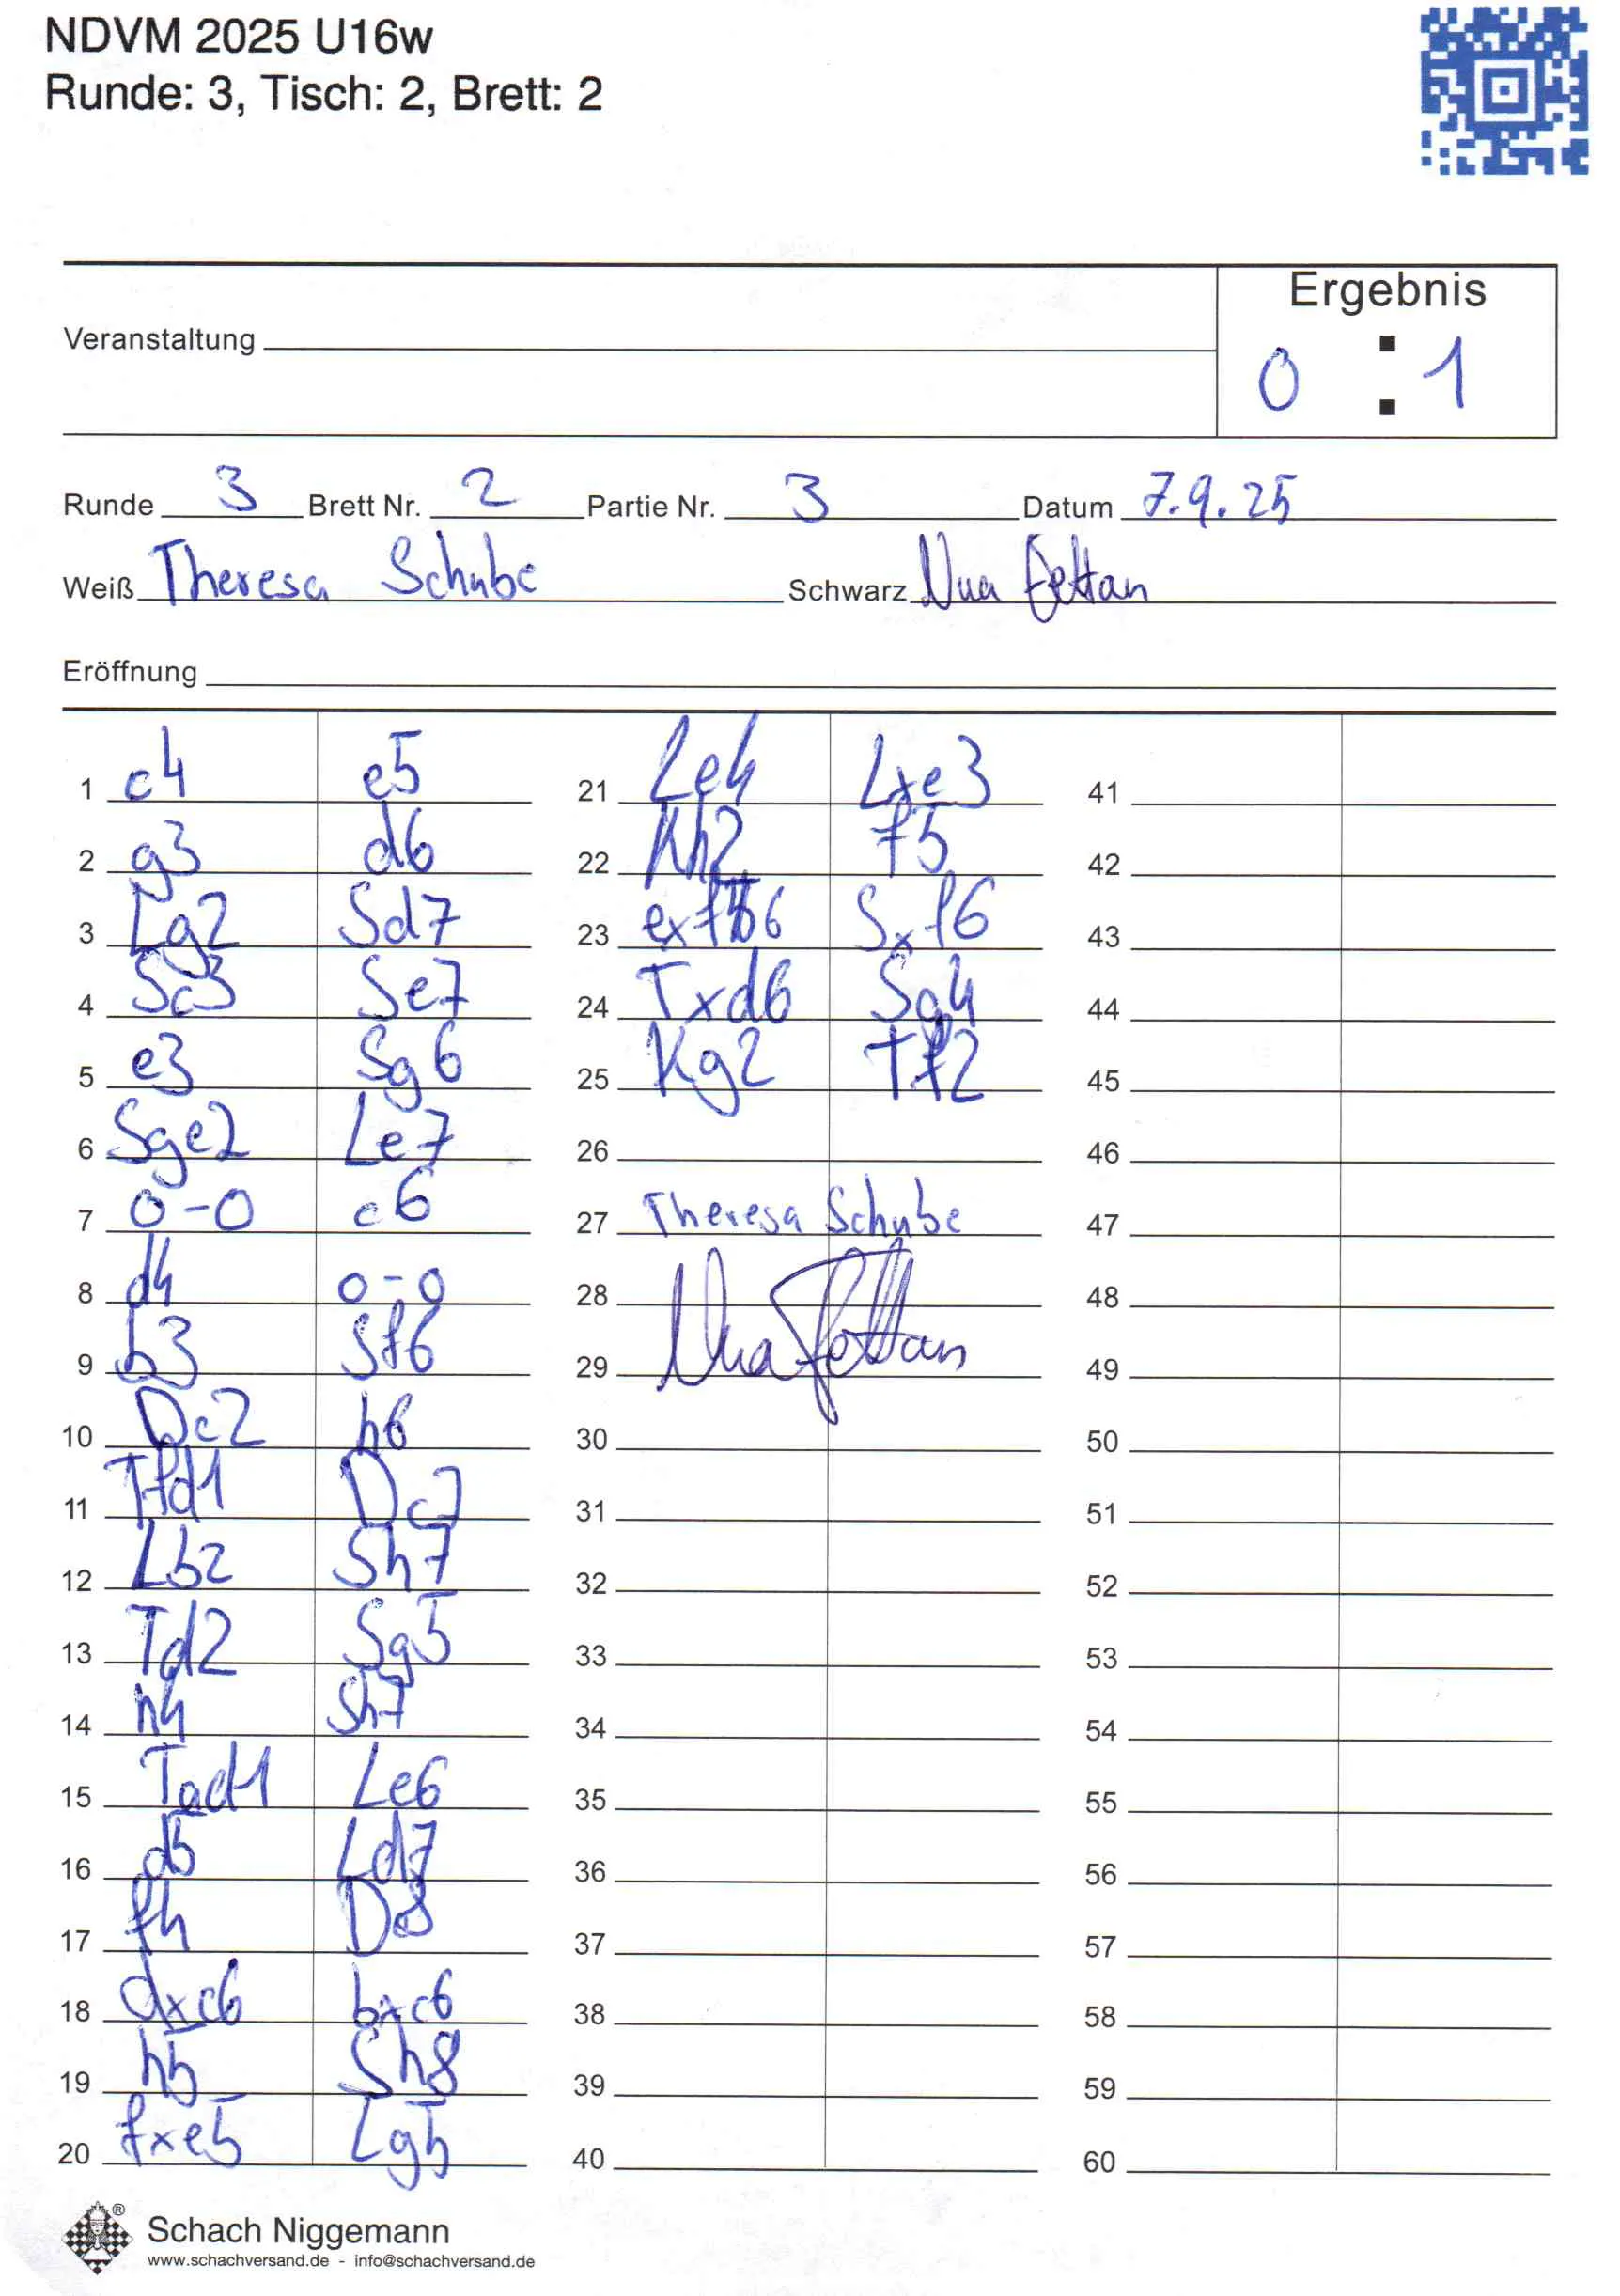 NDVM 2025 U16w
Runde: 3, Tisch: 2, Brett: 2
Ergebnis
Veranstaltung
0 : 1
Runde 3 Brett Nr. 2 Partie Nr. 3 Datum 7.9.25
Weiß Theresa Schube Schwarz Nua Fettan
Eröffnung
1 c4 e5
2 g3 d6
3 Lg2 Sd7
4 Sc3 Se7
5 e3 Sg6
6 Sge2 Le7
7 0-0 c6
8 d4 0-0
9 b3 Sf6
10 Dc2 h6
11 Tfd1 Dc7
12 Lb2 Sh7
13 Td2 Sg5
14 h4 Sh7
15 Tad1 Le6
16 d5 Ld7
17 f4 Dc8
18 dxc6 bxc6
19 h5 Sh8
20 fxe5 Lg5
21 Le4 Lxe3
22 Kh2 f5
23 exf6 Sxf6
24 Txd6 Sg4
25 Kg2 Tf2
26
27 Theresa Schube
28
29 Nua Fettan
30
31
32
33
34
35
36
37
38
39
40
41
42
43
44
45
46
47
48
49
50
51
52
53
54
55
56
57
58
59
60
® Schach Niggemann
www.schachversand.de - info@schachversand.de